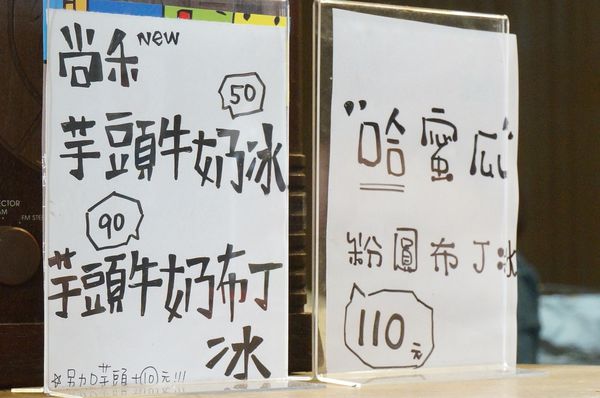 尚禾 New
50
芋頭牛奶冰
90
芋頭牛奶布丁
冰
☆另加芋頭+10元!!!
"哈蜜瓜"
粉圓布丁冰
110元
FM STE